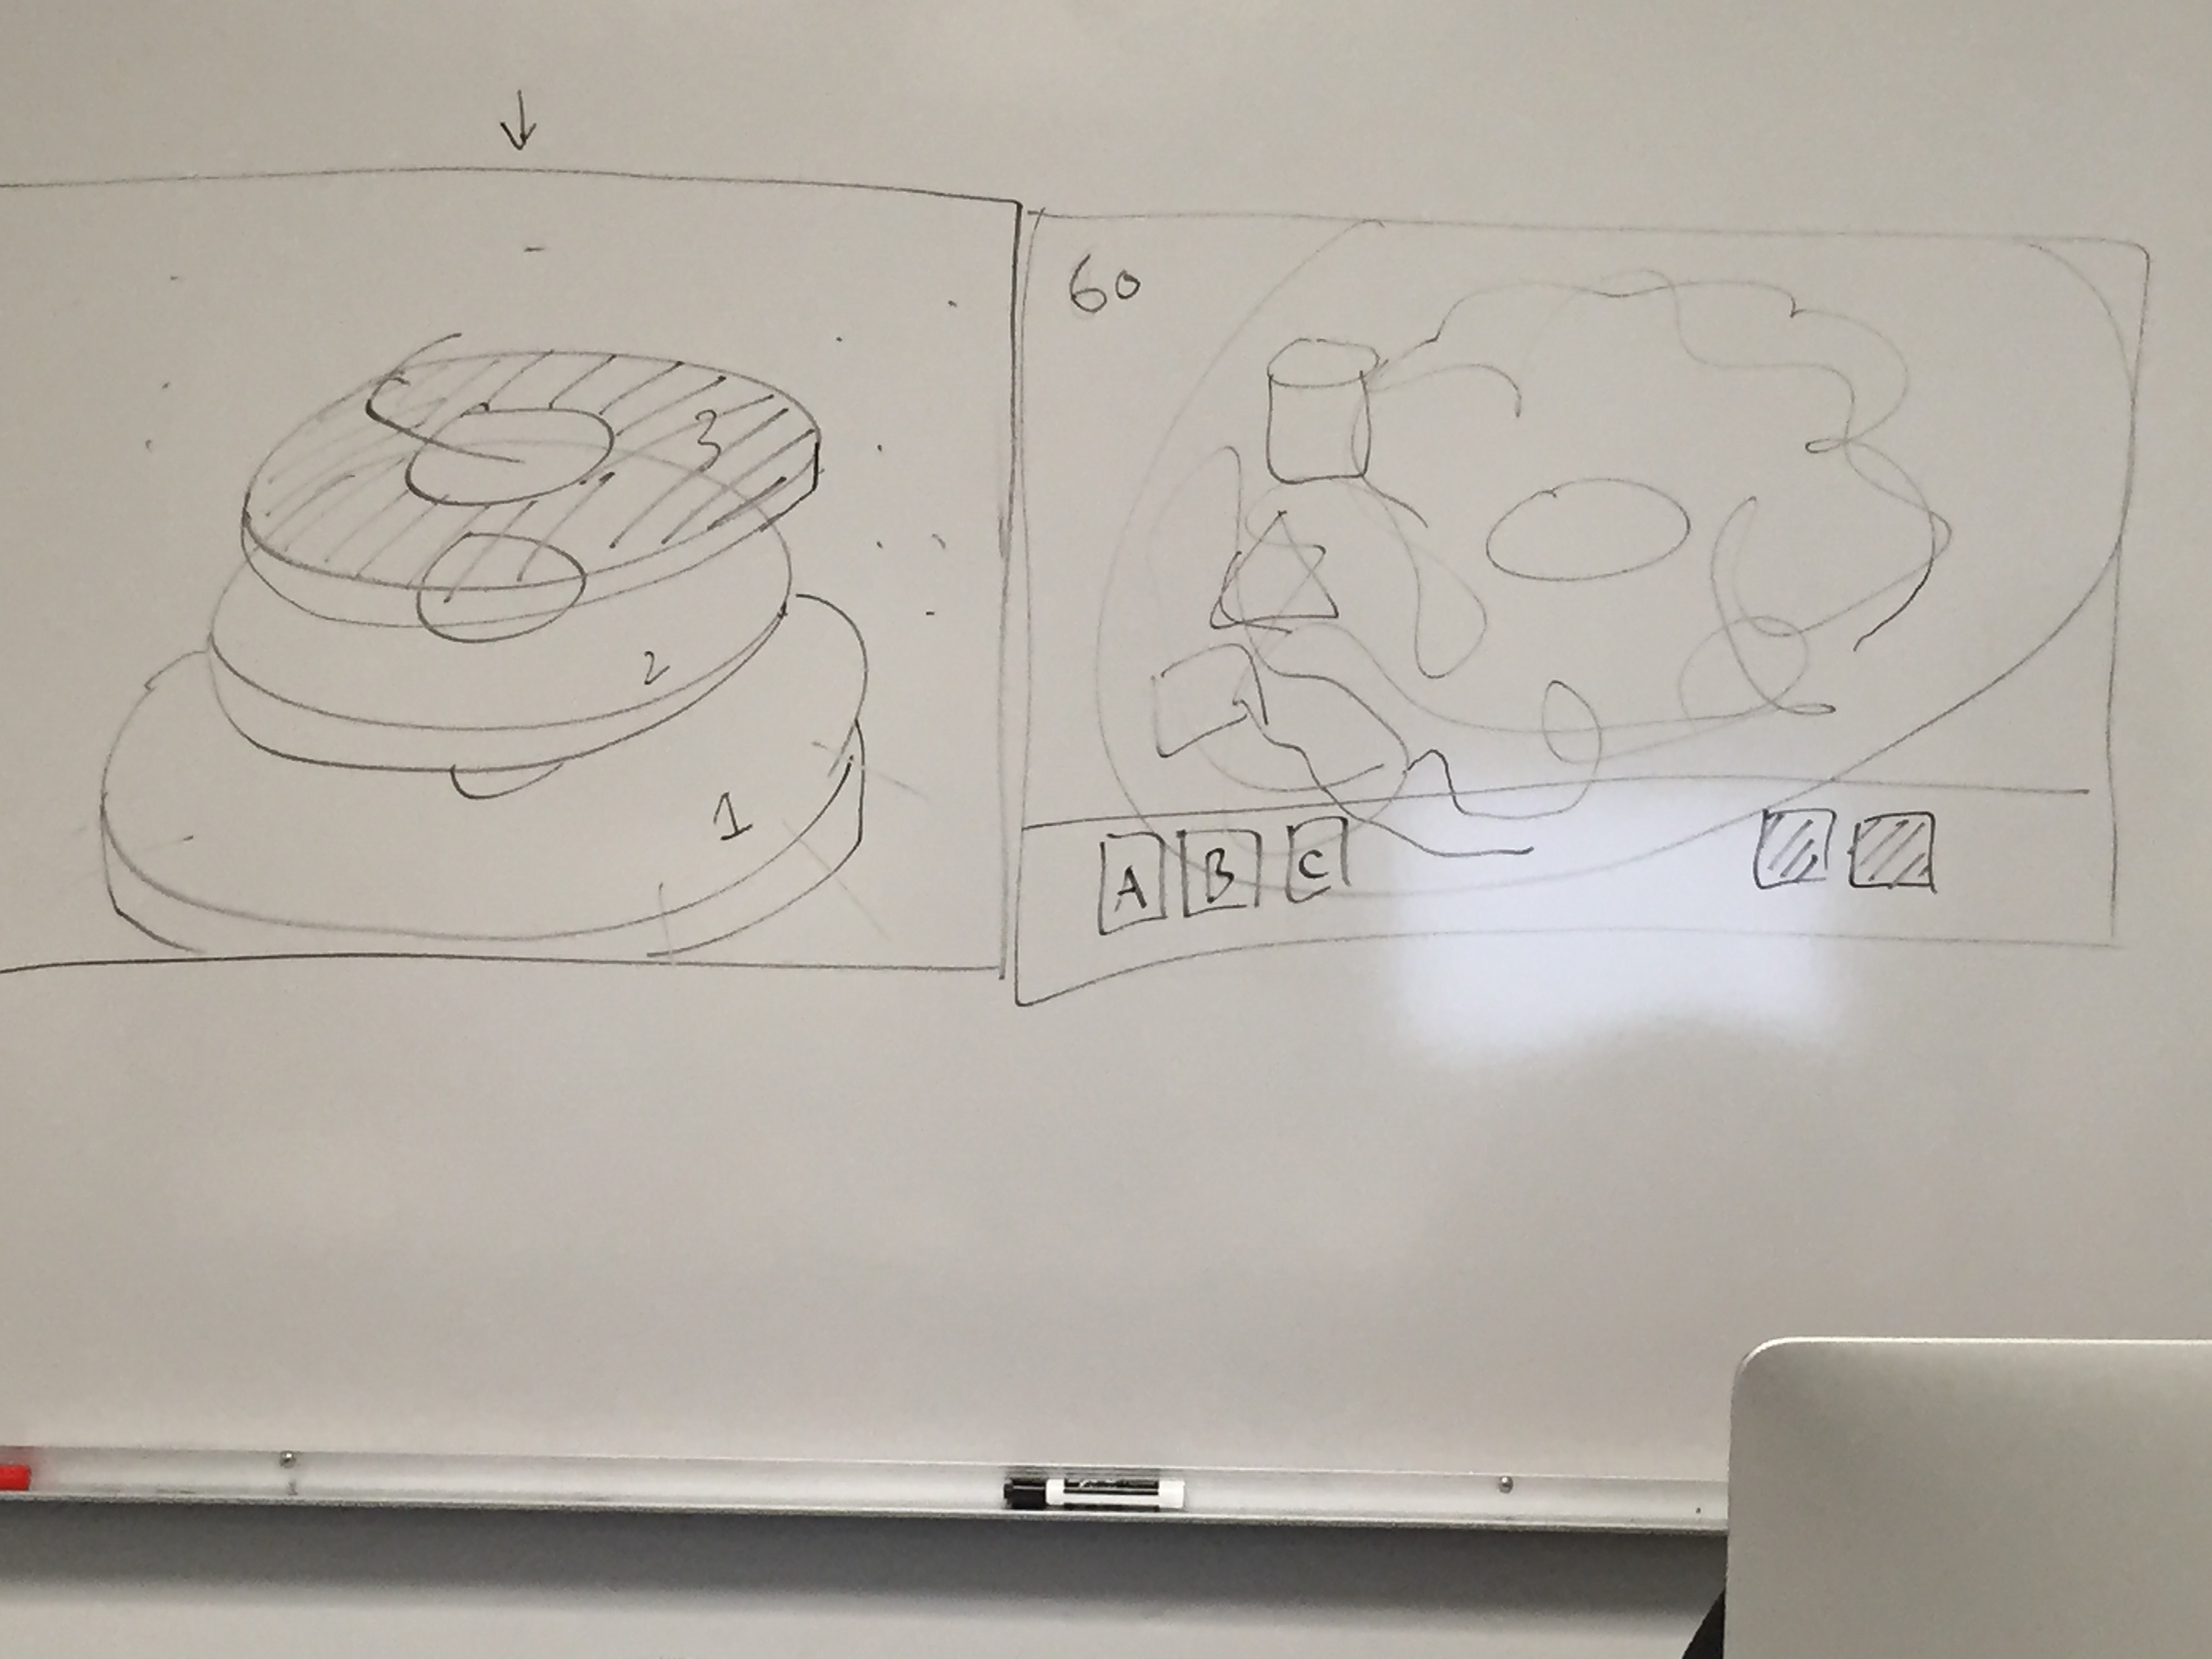 3
2
1
60
A B C